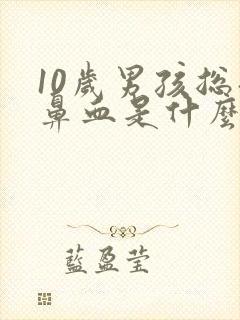 10歲男孩总
鼻血是什麼
藍盈莹